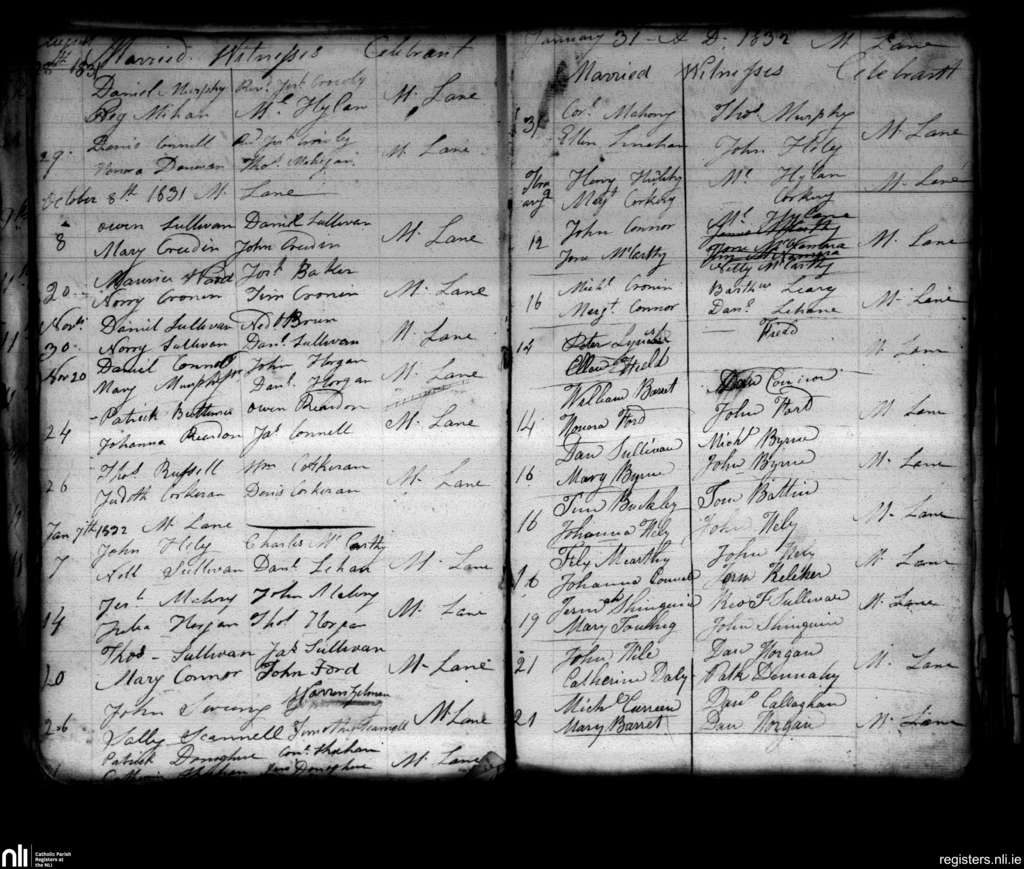 August
28th 1831 Married Witnesses Celebrant
Daniel Murphy Revd Jerh Crowly
Peg Mihan Ml Hylan M. Lane
Denis Connell
29 Honora Donovan Thos Mehigan M. Lane
October 8th 1831 M. Lane
Owen Sullivan Daniel Sullivan
8 Mary Creedin John Creedin M. Lane
Maurice Ward Jerh Baker
20 Norry Cronin Tim Cronin M. Lane
Novr Daniel Sullivan Ned Brun
30 Norry Sullivan Danl Sullivan M. Lane
Daniel Connell John Horgan
Nov 20 Mary Murphy Danl Horgan M. Lane
Patrick Buttimer Owen Reardon
24 Johanna Reardon Jas Connell M. Lane
Thos Russell Wm Corkeran
26 Judath Corkeran Denis Corkeran M. Lane
Jan 7th 1832 M. Lane
John Hely Charles McCarthy
7 Nell Sullivan Danl Lehan M. Lane
Jerh Mahony John Mahony
14 Julia Horgan Thos Horgan M. Lane
Thos Sullivan Jas Sullivan
20 Mary Connor John Ford M. Lane
John
26 Sally Scannell Timothy Scannell M. Lane
Patrick Donoghue Cors Shehan
Donoghue M. Lane
January 31 - A. D. 1832 M. Lane
Married Witnesses Celebrant
31 Cors Mahony Thos Murphy
Ellen Linehan John Hely M. Lane
Henry Ml Hylan M. Lane
Margt Corkery Corkery
12 John Connor Ml Hylane
M. Lane
Jora McCarthy Nelly McCarthy
Michl Cronin Barthw Leary
16 Margt Connor Danl Lehane M. Lane
14 Peter M. Lane
Ellen Field
William Barret Dan Connor
14 Honora Ford John Ford M. Lane
Dan Sullivan Michl Byrne
16 Mary Byrne John Byrne M. Lane
Tim Buckley Tom Battin
16 Johanna Hely John Hely M. Lane
John Hely
16 Johanna Connell Jerm Keliher M. Lane
Jermh Shinguin F Sullivan M. Lane
19 Mary Twomg John Shinguin
John Hile Dan Horgan
21 Catherine Daly Patk Dennahy M. Lane
Michl Curreen Danl Callaghan
21 Mary Barret Dan Horgan M. Lane
nli Catholic Parish
Registers at
the NLI
registers.nli.ie